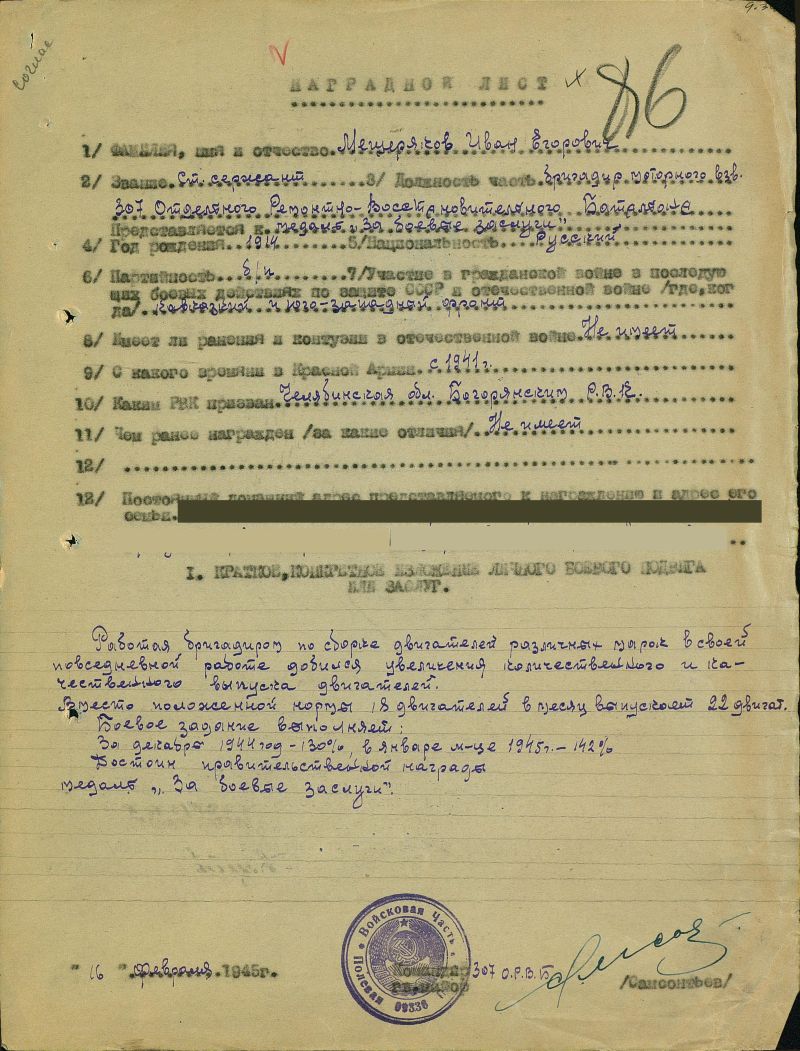 Соглас
НАГРАДНОЙ ЛИСТ
86
1/ ФАМИЛИЯ, имя и отчество. Мещеряков Иван Егорович
2/ Звание. Ст. сержант 3/ Должность часть. бригадир моторного взв.
307 Отделяного Ремонтно-Восстановителяного Баталяона
Представляется к медаля „За боевые заслуги"
4/ Год рождения. 1914 5/Национальность Русский
6/ Партийность. б/п. 7/Участие в гражданской войне в последую
щих боевых действиях по защите СССР и отечественной войне /где, ког
да/. Кавказкий и юго-западной фронт
8/ Имеет ли ранения и контузии в отечественной войне. Не имеет
9/ С какого времени в Красной Армии. с 1941 г.
10/ Каким РВК призван. Челябинская обл. Богорянским Р.В.К.
11/ Чем ранее награжден /за какие отличия/. Не имеет
12/
12/ Постоянный домашний адрес представляемого к награждению и адрес его
семьи.
I. КРАТКОЕ, КОНКРЕТНОЕ ИЗЛОЖЕНИЕ ЛИЧНОГО БОЕВОГО ПОДВИГА
ИЛИ ЗАСЛУГ.
Работая бригадиром по сборке двигателей различных марок в своей
повседневной работе добился увеличения количественного и ка-
чественного выпуска двигателей.
Вместо положенной нормы 18 двигателей в месяц выпускает 22 двигат.
Боевое задание выполняет:
За декабря 1944 год - 130%, в январе м-це 1945г. - 142%
Достоин правительственной награды
медаля „За боевые заслуги".
Войсковая Часть
Полевая 09336
"16" февраля 1945г.
Командир 307 О.Р.В.Б.
гв. майор /Самсонтьев/